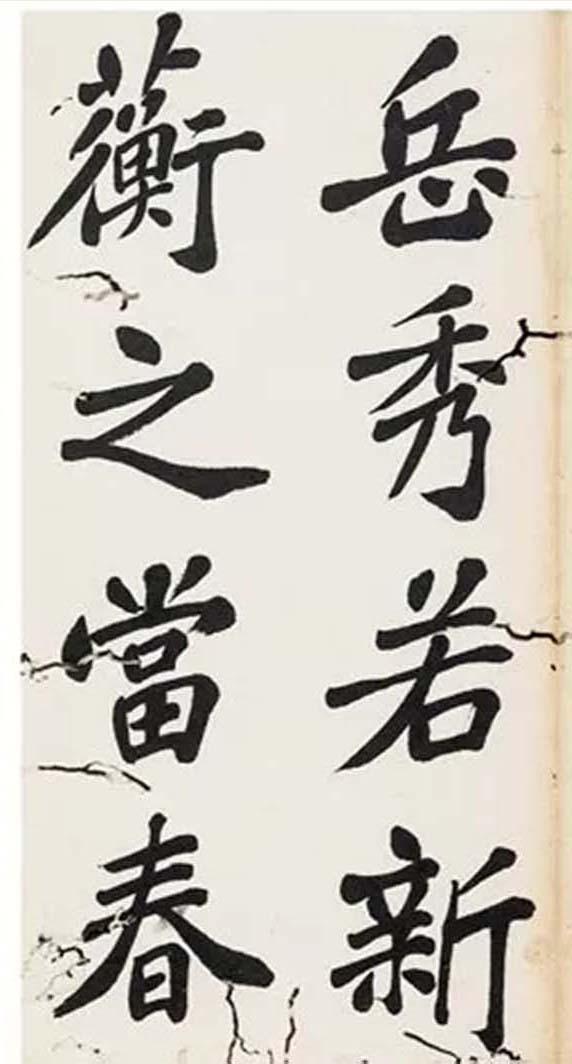 岳秀若新
蘅之當春